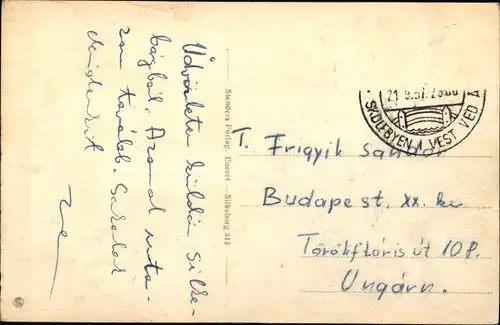 Üdvözletem küldöm Silke-
borgból. Azonnal uta-
zom tovább. Sokolat
mindenkit
Stenders Forlag. Eneret — Silkeborg 313
21.9.57.
SKOLEBYEN I VEST VED Å
T. Frigyik Sándor
Budapest. XX. ker
Törökflóris út 108.
Ungarn.